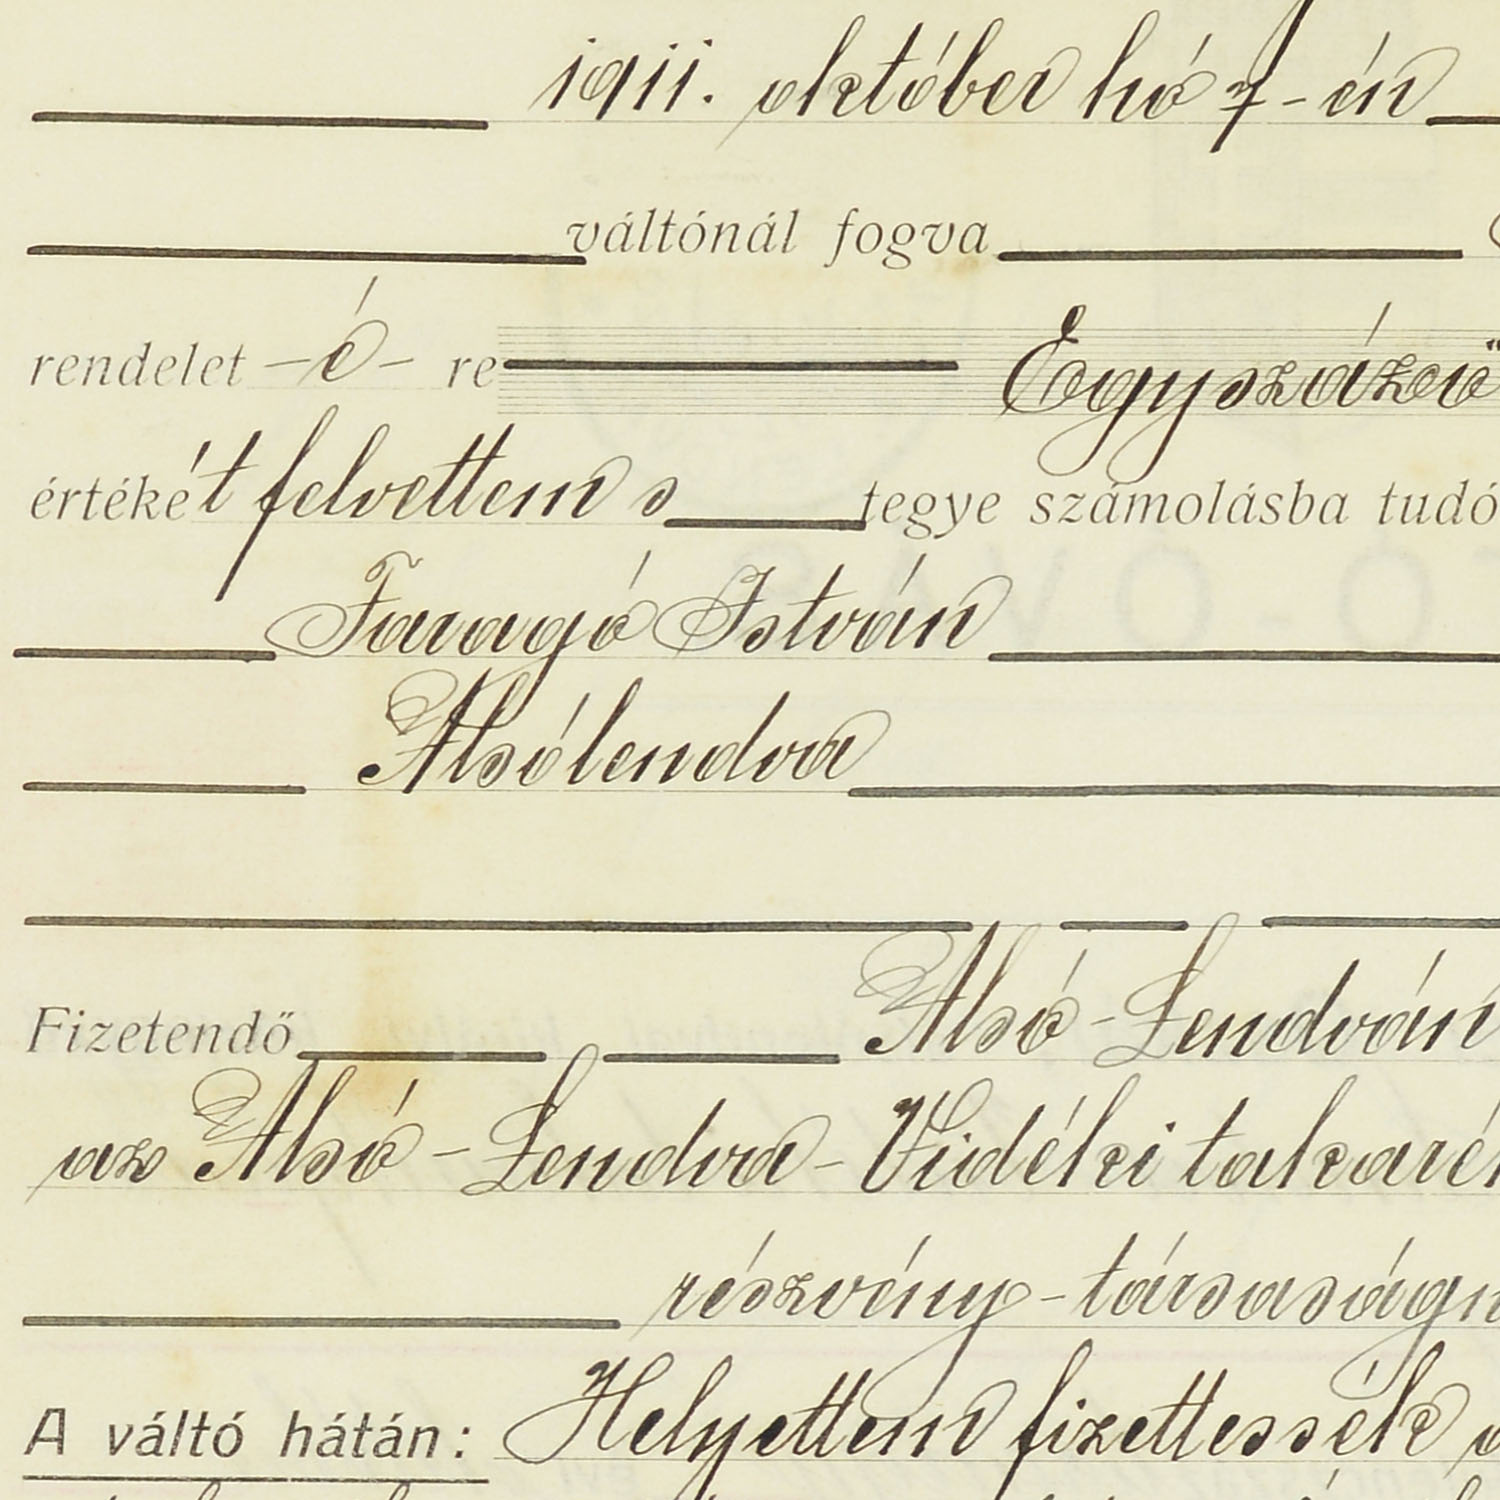 1911. október hó 7-én
váltónál fogva
rendelet - é - re Egyszázö
értékét felvettem s tegye számolásba tudó
Faragó István
Alsólendva
Fizetendő Alsó-Lendván
az Alsó-Lendva-Vidéki takarék
részvény-társaságn
A váltó hátán: Helyettem fizettessék